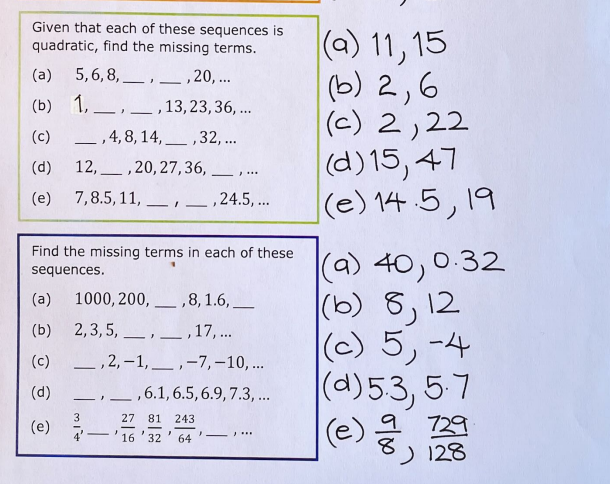 Given that each of these sequences is
quadratic, find the missing terms.
(a) 5, 6, 8, __ , __ , 20, ...
(b) 1, __ , __ , 13, 23, 36, ...
(c) __ , 4, 8, 14, __ , 32, ...
(d) 12, __ , 20, 27, 36, __ , ...
(e) 7, 8.5, 11, __ , __ , 24.5, ...
(a) 11, 15
(b) 2, 6
(c) 2, 22
(d) 15, 47
(e) 14.5, 19
Find the missing terms in each of these
sequences.
(a) 1000, 200, __ , 8, 1.6, __
(b) 2, 3, 5, __ , __ , 17, ...
(c) __ , 2, −1, __ , −7, −10, ...
(d) __ , __ , 6.1, 6.5, 6.9, 7.3, ...
(e) 3/4, __ , 27/16, 81/32, 243/64, __ , ...
(a) 40, 0.32
(b) 8, 12
(c) 5, -4
(d) 5.3, 5.7
(e) 9/8, 729/128